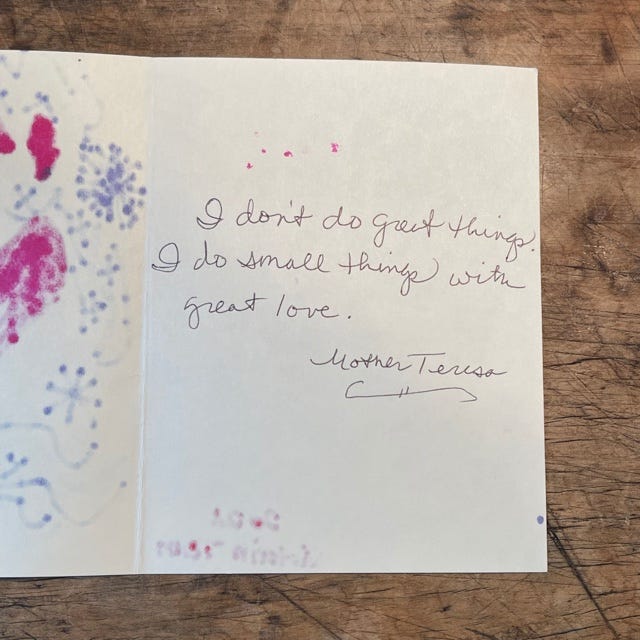 I don't do great things.
I do small things with
great love.
Mother Teresa